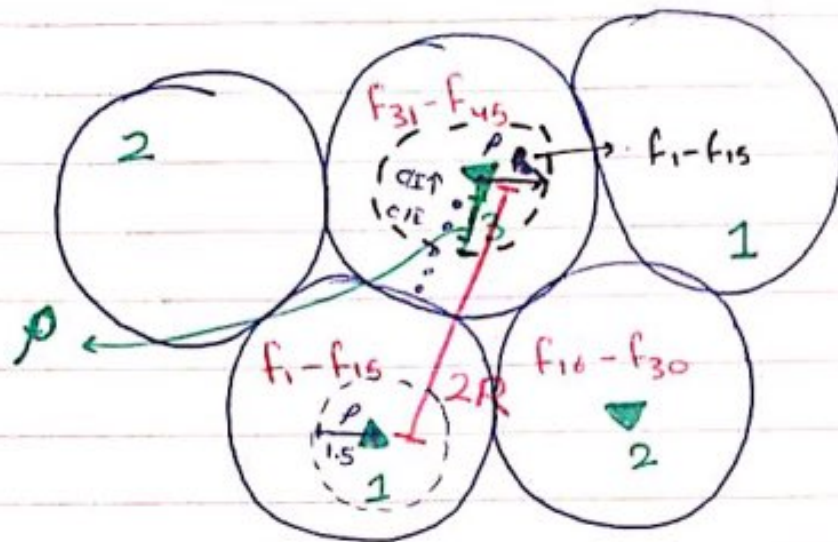 2
f31-f45
ρ
CIT↑
C/I
3
f1-f15
1
ρ
f1-f15
ρ
1.5
1
2R
f16-f30
2